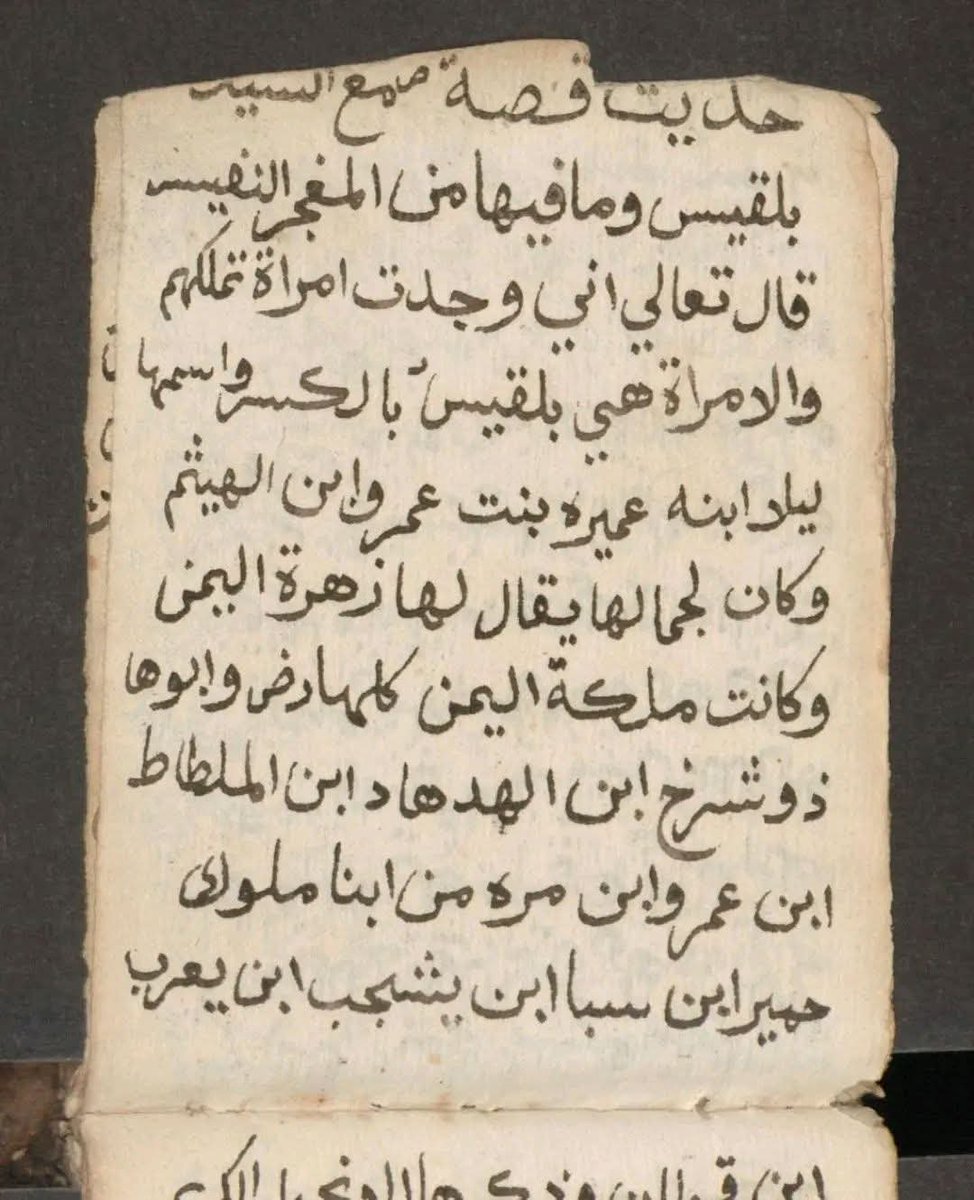 حديت قصة مع السيد
بلقيس وما فيها من المفجر النفيس
قال تعالي اني وجدت امراة تملكهم
والامراة هي بلقيس بالكسر واسمها
ليلا ابنه عميره بنت عمرو ابن الهيثم
وكان لجمالها يقال لها زهرة اليمن
وكانت ملكة اليمن كلها وابوها
ذو شرخ ابن الهدهاد ابن الملطاط
ابن عمرو ابن مره من ابنا ملوك
حمير ابن سبا ابن يشجب ابن يعرب
ابن